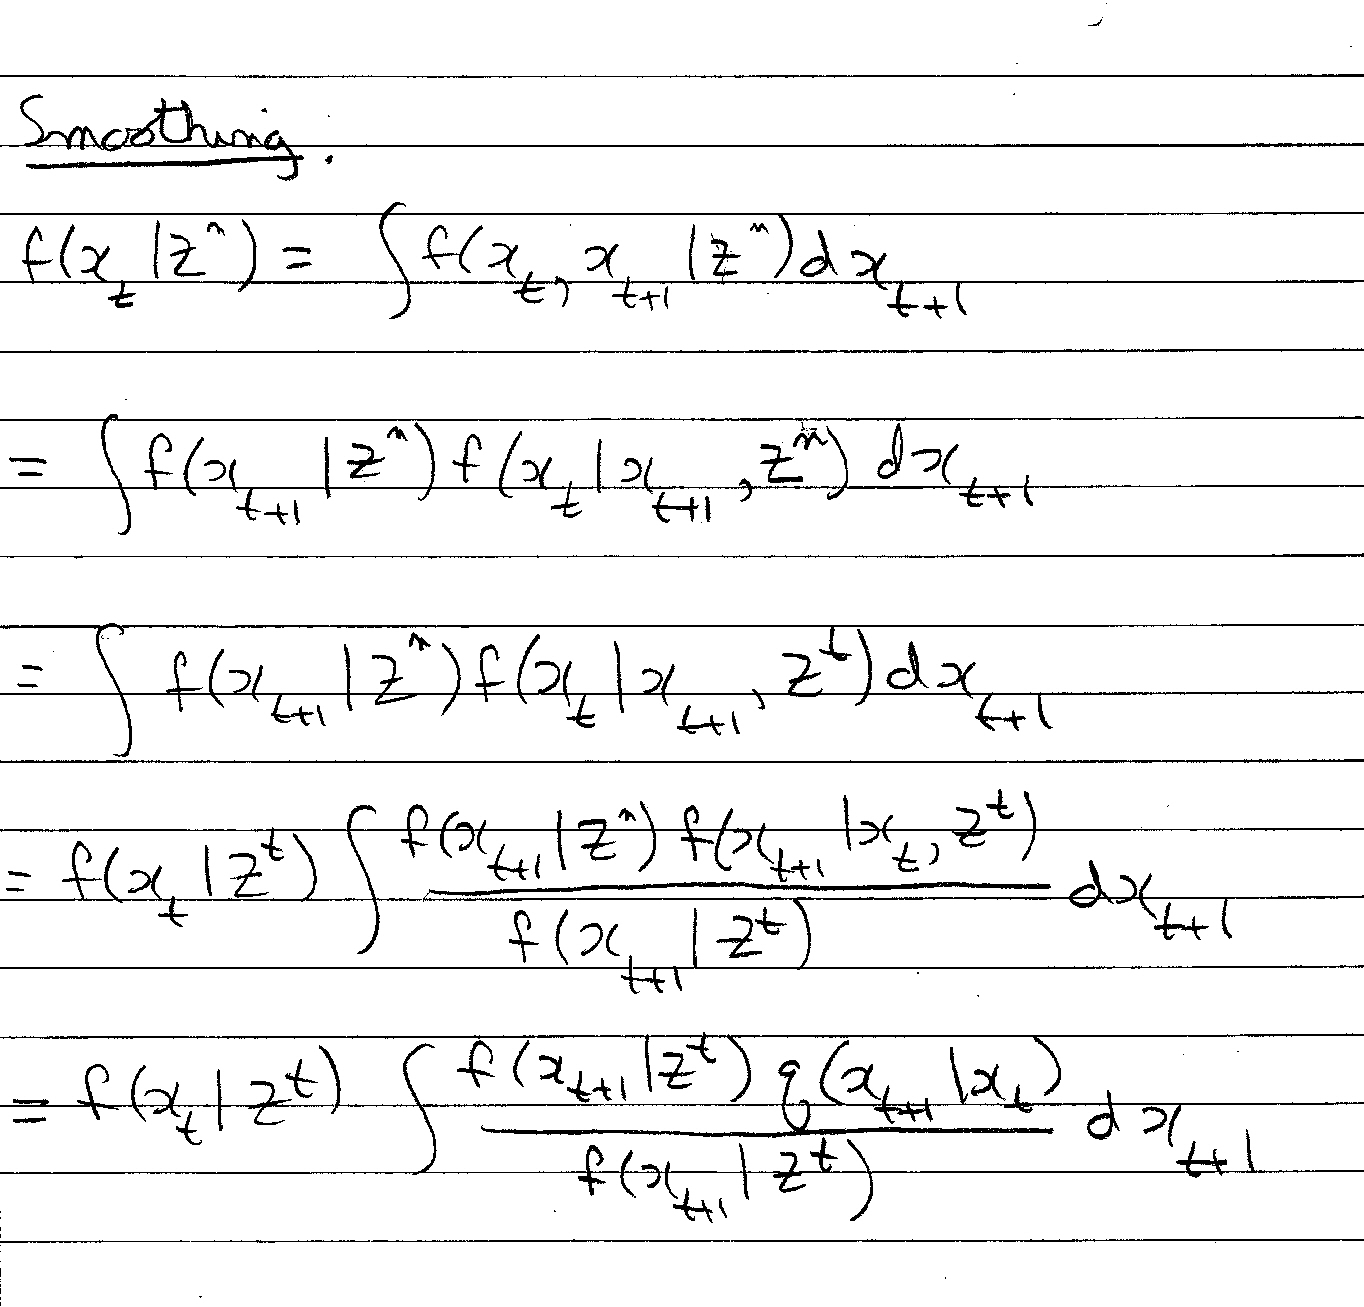 Smoothing.
f(x_t | z^n) = ∫ f(x_t, x_{t+1} | z^n) dx_{t+1}
= ∫ f(x_{t+1} | z^n) f(x_t | x_{t+1}, z^n) dx_{t+1}
= ∫ f(x_{t+1} | z^n) f(x_t | x_{t+1}, z^t) dx_{t+1}
= f(x_t | z^t) ∫ \frac{f(x_{t+1} | z^n) f(x_{t+1} | x_t, z^t)}{f(x_{t+1} | z^t)} dx_{t+1}
= f(x_t | z^t) ∫ \frac{f(x_{t+1} | z^t) q(x_{t+1} | x_t)}{f(x_{t+1} | z^t)} dx_{t+1}